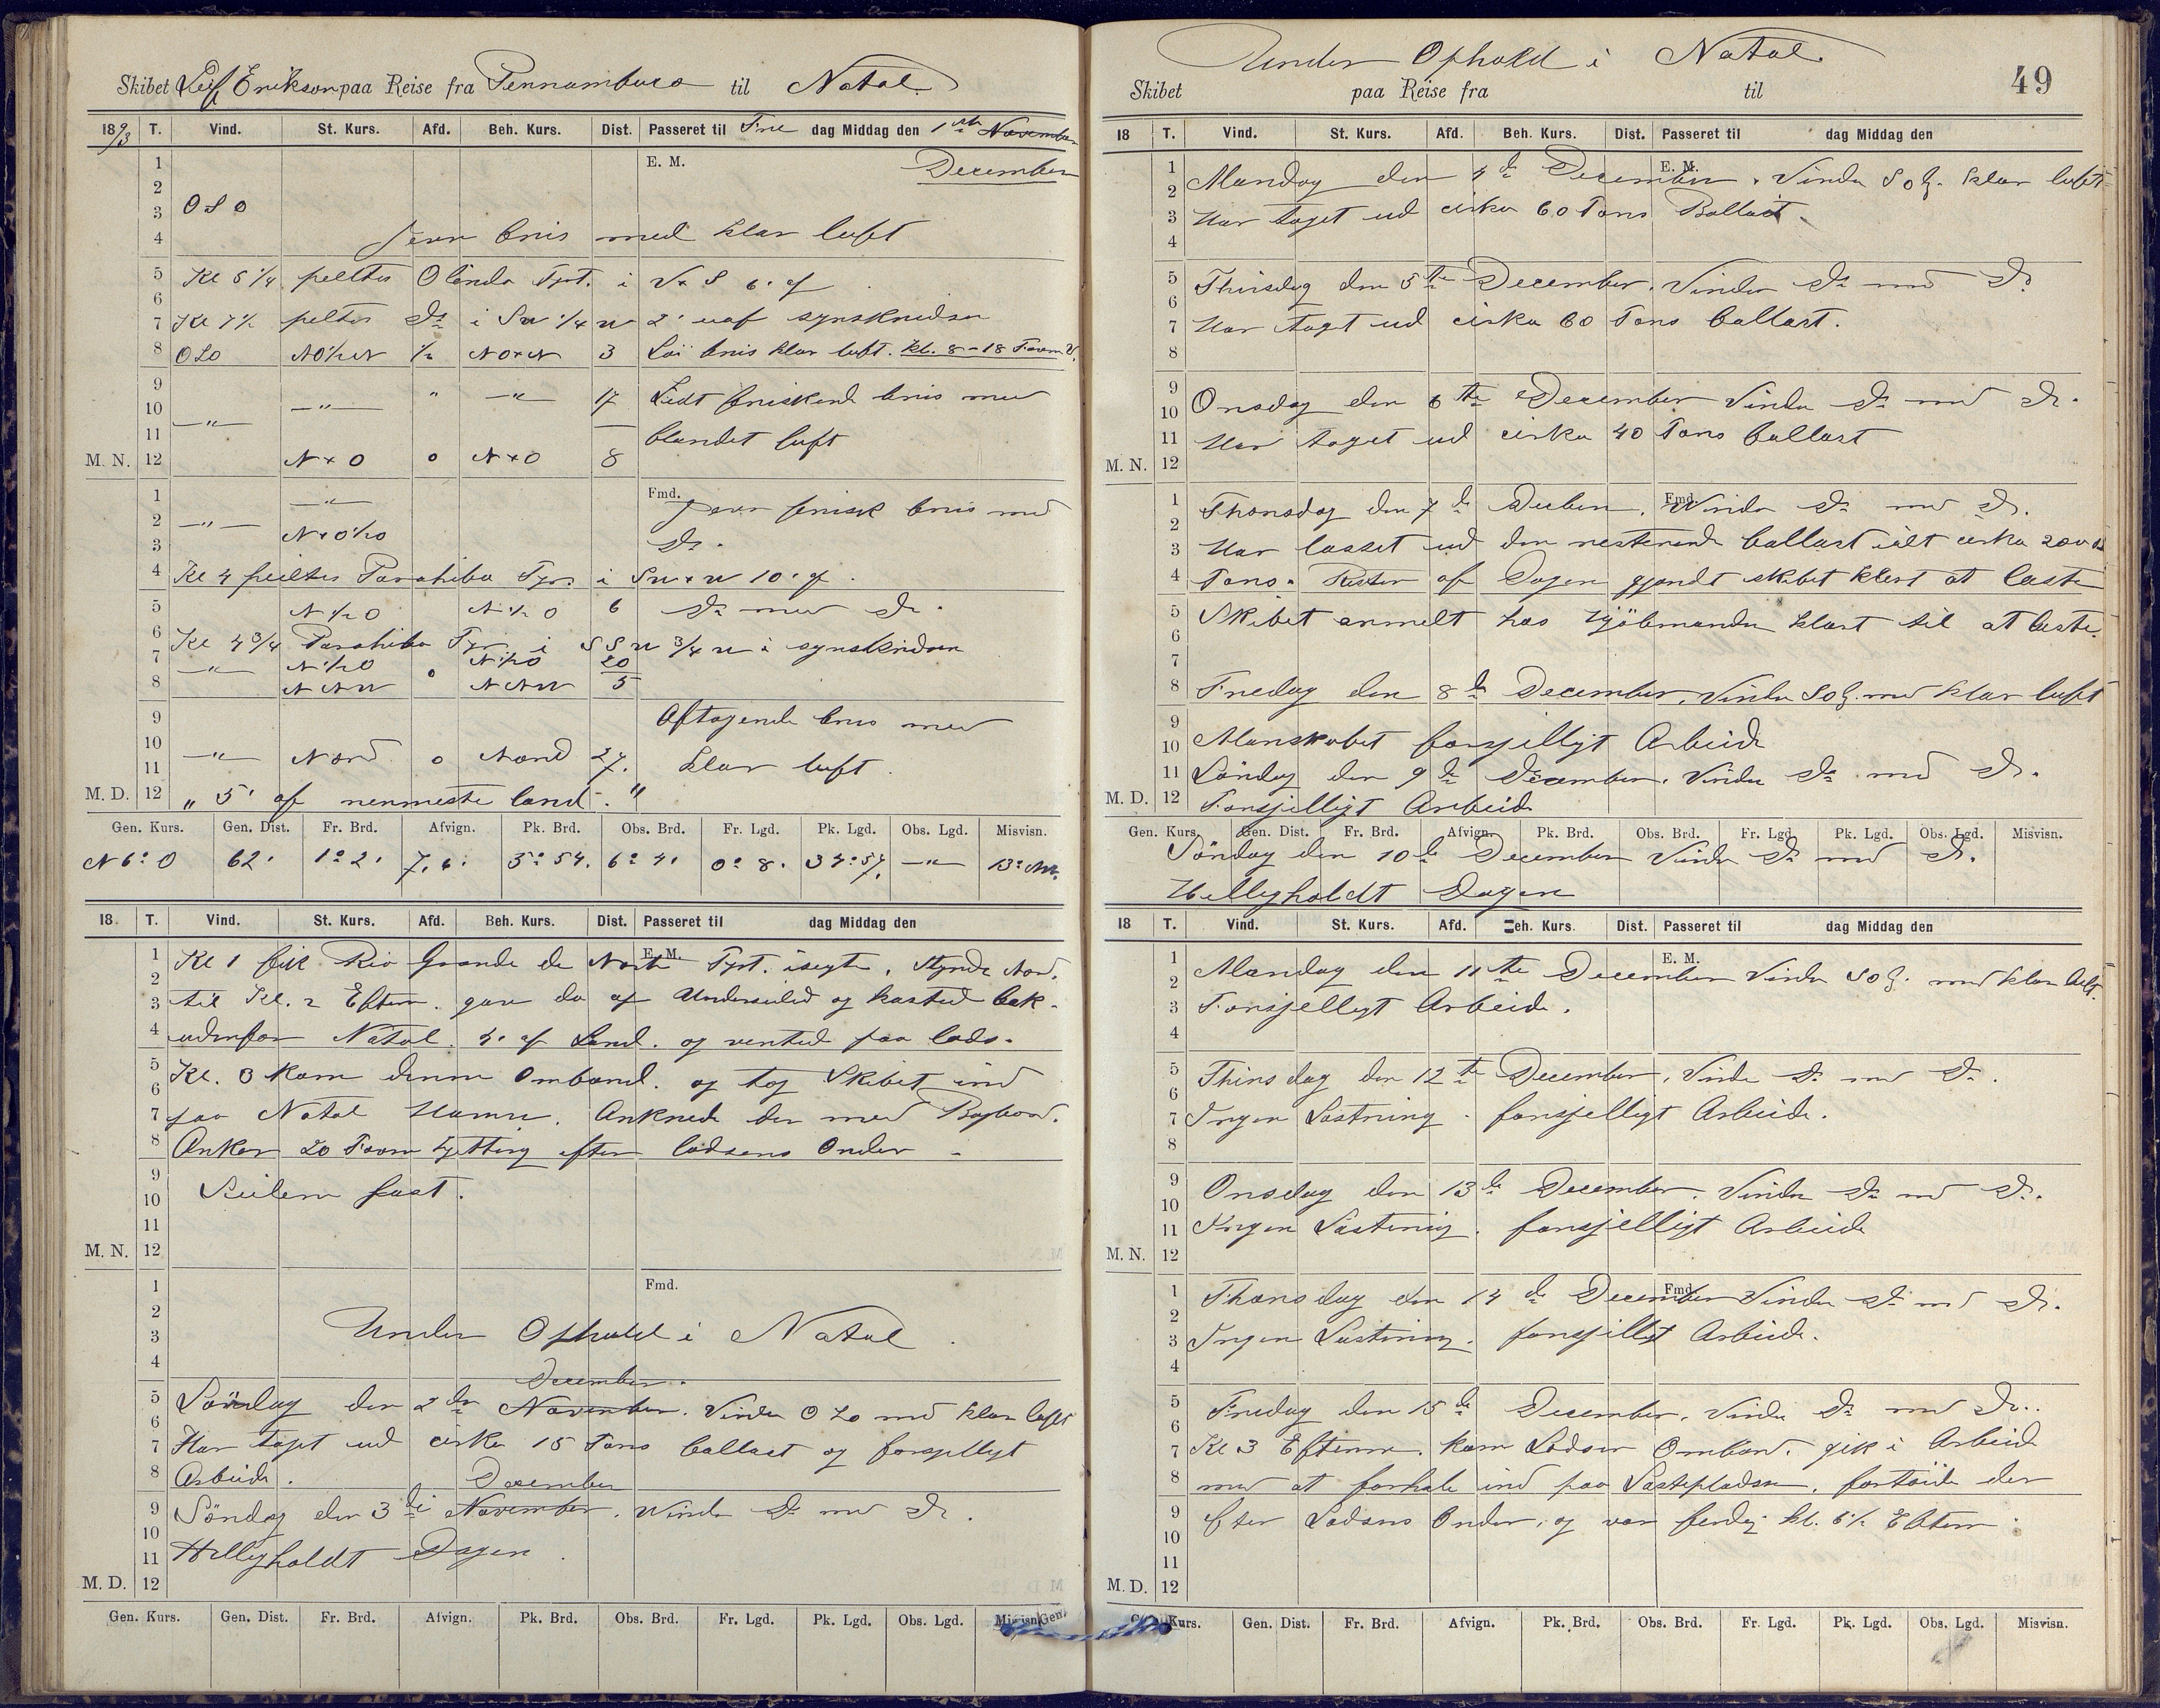 Skibet Leif Erikson paa Reise fra Pernambuco til Natal.
1893 T. Vind. St. Kurs. Afd. Beh. Kurs. Dist. Passeret til Fre dag Middag den 1ste November
1 E. M. December
2
3 OSO
4 Jevn bris med klar luft
5 Kl 5 1/4 peiltes Olinda Fyrt. i V x S 6' af
6
7 Kl 7 1/2 peiltes Do i SW 1/4 W 2' uaf synskredsen
8 OSO NO 1/2 N 1/2 NOxN 3 Løi bris klar luft. Kl. 8 - 18 Favn V.
9 " —"— 17 Lidt friskend bris med
10 —"—
11 —"— blandet luft
M. N. 12 N x O 0 N x O 8
1 —"— Fmd. Jevn frisk bris med
2 —"— N x O 1/2 O
3 Do.
4 Kl 4 peiltes Parahiba Fyr. i SW x W 10' af.
5 N 1/2 O N 1/2 O 6 Do med Do.
6 Kl 4 3/4 Parahiba Fyr. i SSW 3/4 W i synskredsen
7 —"— N 1/2 O 0 N 1/2 O 20
8 NNW NNW 5
9 Aftagende bris med
10 —"— Nord 0 Nord 27.
11 klar luft.
M. D. 12 " 5' af nermeste land. "
Gen. Kurs. Gen. Dist. Fr. Brd. Afvign. Pk. Brd. Obs. Brd. Fr. Lgd. Pk. Lgd. Obs. Lgd. Misvisn.
N 6° O 62' 1° 2' 7,6' 5° 54' 6° 4' 0° 8' 34° 57' —"— 13° NW.
18 T. Vind. St. Kurs. Afd. Beh. Kurs. Dist. Passeret til dag Middag den
1 Kl 1 fik Rio Grande de Norte Fyrt. isegte. Styrede Nord. E. M.
2
3 til Kl. 2 Efterm. gav da af Underseiled og kasted bak-
4 udenfor Natal. 4' af Land. og vented paa lods.
5 Kl. 3 kom denne Ombord. og tog Skibet ind
6
7 paa Natal Havn. Ankrede der med Bagbord.
8 Anker 20 Favn Kjetting efter lodsens Order -
9
10 Seilene fast.
11
M. N. 12
1 Fmd.
2
3 Under Ophold i Natal.
4 December.
5 Lørdag den 2den November. Vinden OSO med klar luft
6
7 Har taget ud cirka 15 Tons ballast og forsjelligt
8 Arbeide. December
9 Söndag den 3die November. Vinden Do med Do.
10
11 Helligholdt Dagen.
M. D. 12
Gen. Kurs. Gen. Dist. Fr. Brd. Afvign. Pk. Brd. Obs. Brd. Fr. Lgd. Pk. Lgd. Obs. Lgd. Misvisn.
Under Ophold i Natal.
Skibet paa Reise fra til 49
18 T. Vind. St. Kurs. Afd. Beh. Kurs. Dist. Passeret til dag Middag den
1 E. M.
2 Mandag den 4de December. Vinden SOl. klar luft
3 Har taget ud cirka 60 Tons Ballast.
4
5 Thirsdag den 5te December. Vinden Do med Do
6
7 Har taget ud cirka 60 Tons ballast.
8
9
10 Onsdag den 6te December Vinden Do med Do.
11 Har taget ud cirka 40 Tons ballast
M. N. 12
1 Thorsdag den 7de Decber. Vinden Do med Do. Fmd.
2
3 Har losset ud den resterende ballast ialt cirka 200
4 Tons. Resten af Dagen gjordt skibet klart at laste
5 Skibet anmelt hos Kjöbmanden klart til at laste.
6
7
8 Fredag den 8de December. Vinden SOl. med klar luft
9
10 Manskabet forsjelligt Arbeide
11 Lördag den 9de December. Vinden Do med Do.
M. D. 12 Forsjelligt Arbeide
Gen. Kurs. Gen. Dist. Fr. Brd. Afvign. Pk. Brd. Obs. Brd. Fr. Lgd. Pk. Lgd. Obs. Lgd. Misvisn.
Söndag den 10de December Vinden Do med Do.
Helligholdt Dagen
18 T. Vind. St. Kurs. Afd. Beh. Kurs. Dist. Passeret til dag Middag den
1 E. M.
2 Mandag den 11te December Vinden SOl. med klar luft.
3 Forsjelligt Arbeide.
4
5 Thirsdag den 12te December. Vinden Do med Do.
6
7 Ingen Lastning. forsjelligt Arbeide.
8
9 Onsdag den 13de December. Vinden Do med Do.
10
11 Ingen Lastning. forsjelligt Arbeide
M. N. 12
1 Thorsdag den 14de December Vinden Do med Do. Fmd.
2
3 Ingen Lastning. forsjelligt Arbeide.
4
5 Fredag den 15de December. Vinden Do med Do.
6
7 Kl 3 Efterm. kom Lodsen Ombord. gik i Arbeid
8 med at forhale ind paa Lastepladsen. fortöiede der
9 efter Lodsens Order. og var ferdig kl. 6 1/2 Efterm.
10
11
M. D. 12
Kurs. Gen. Dist. Fr. Brd. Afvign. Pk. Brd. Obs. Brd. Fr. Lgd. Pk. Lgd. Obs. Lgd. Misvisn.